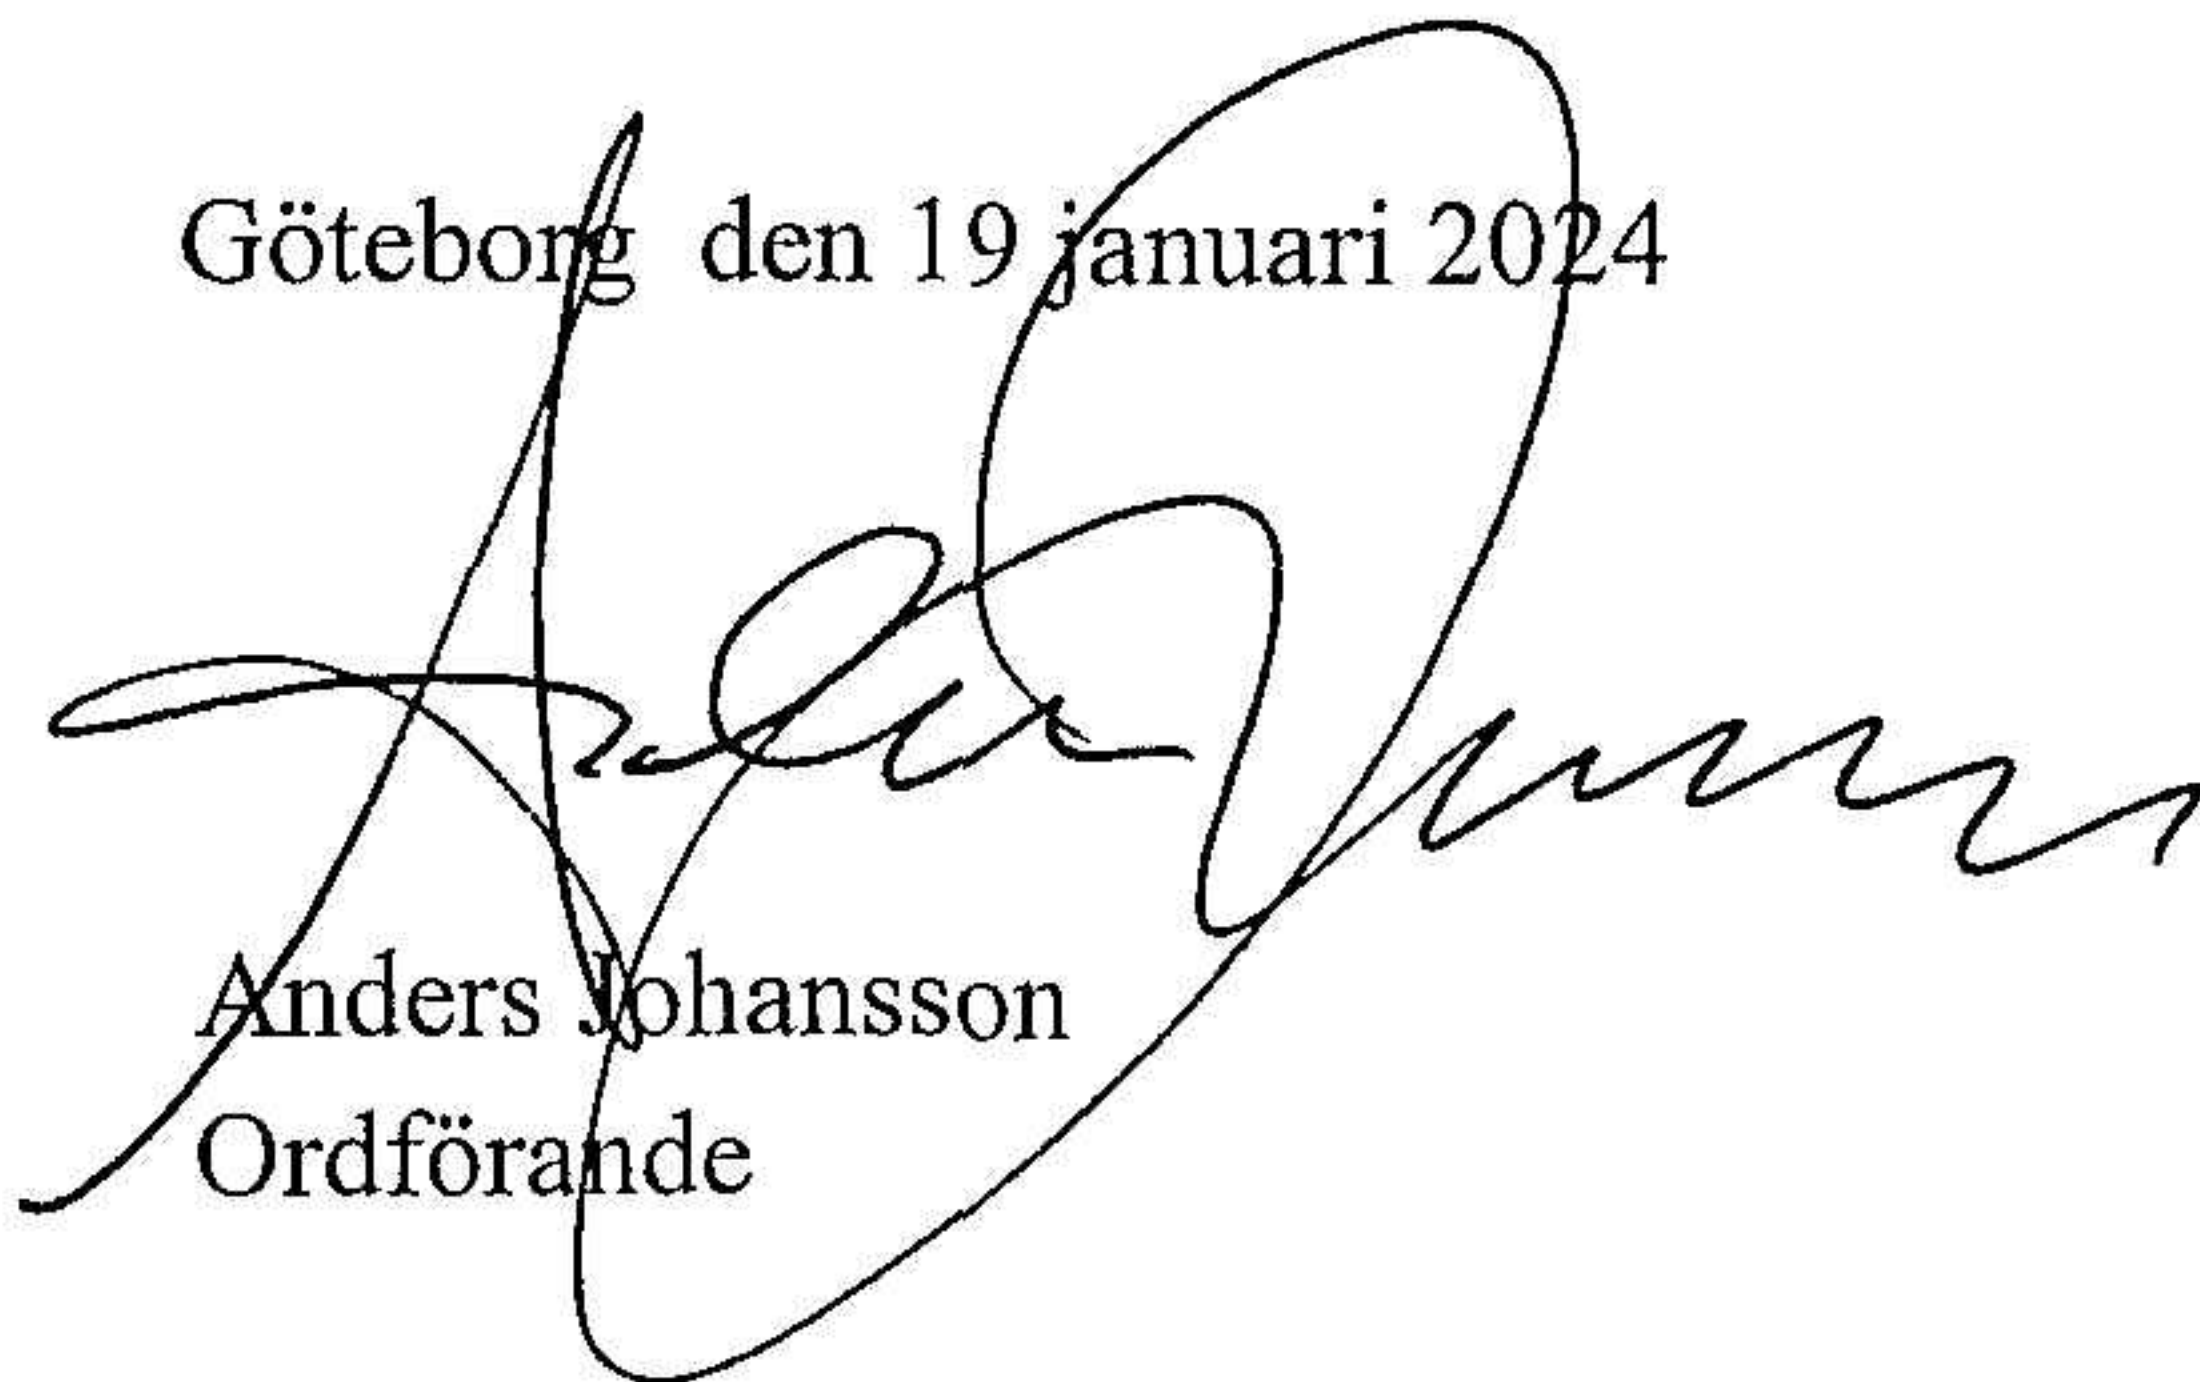 Göteborg den 19 januari 2024
Anders Johansson
Ordförande